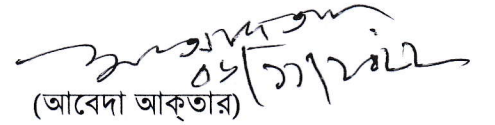 ০৬/১১/২০২২
(আবেদা আক্তার)